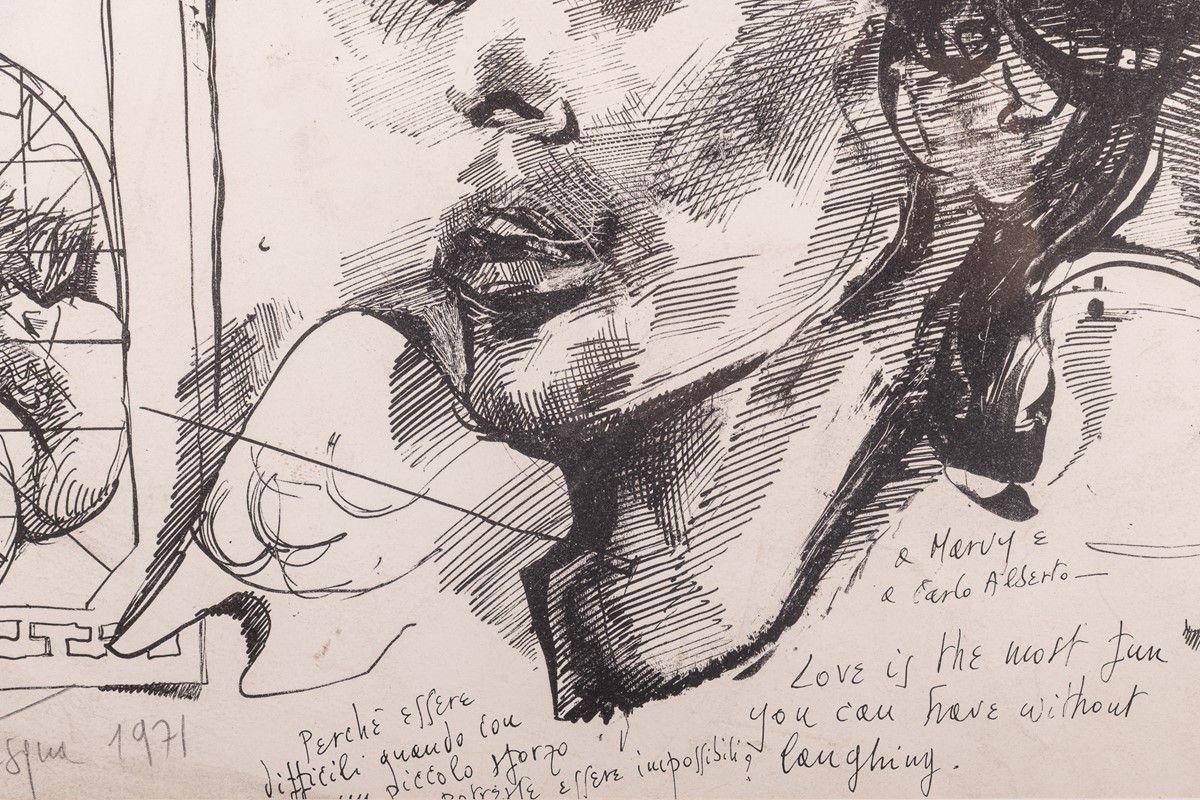 a Marvy e
a Carlo Alberto—
Love is the most fun
you can have without
laughing.
Perchè essere
difficili quando con
un piccolo sforzo
potreste essere impossibili?
1971